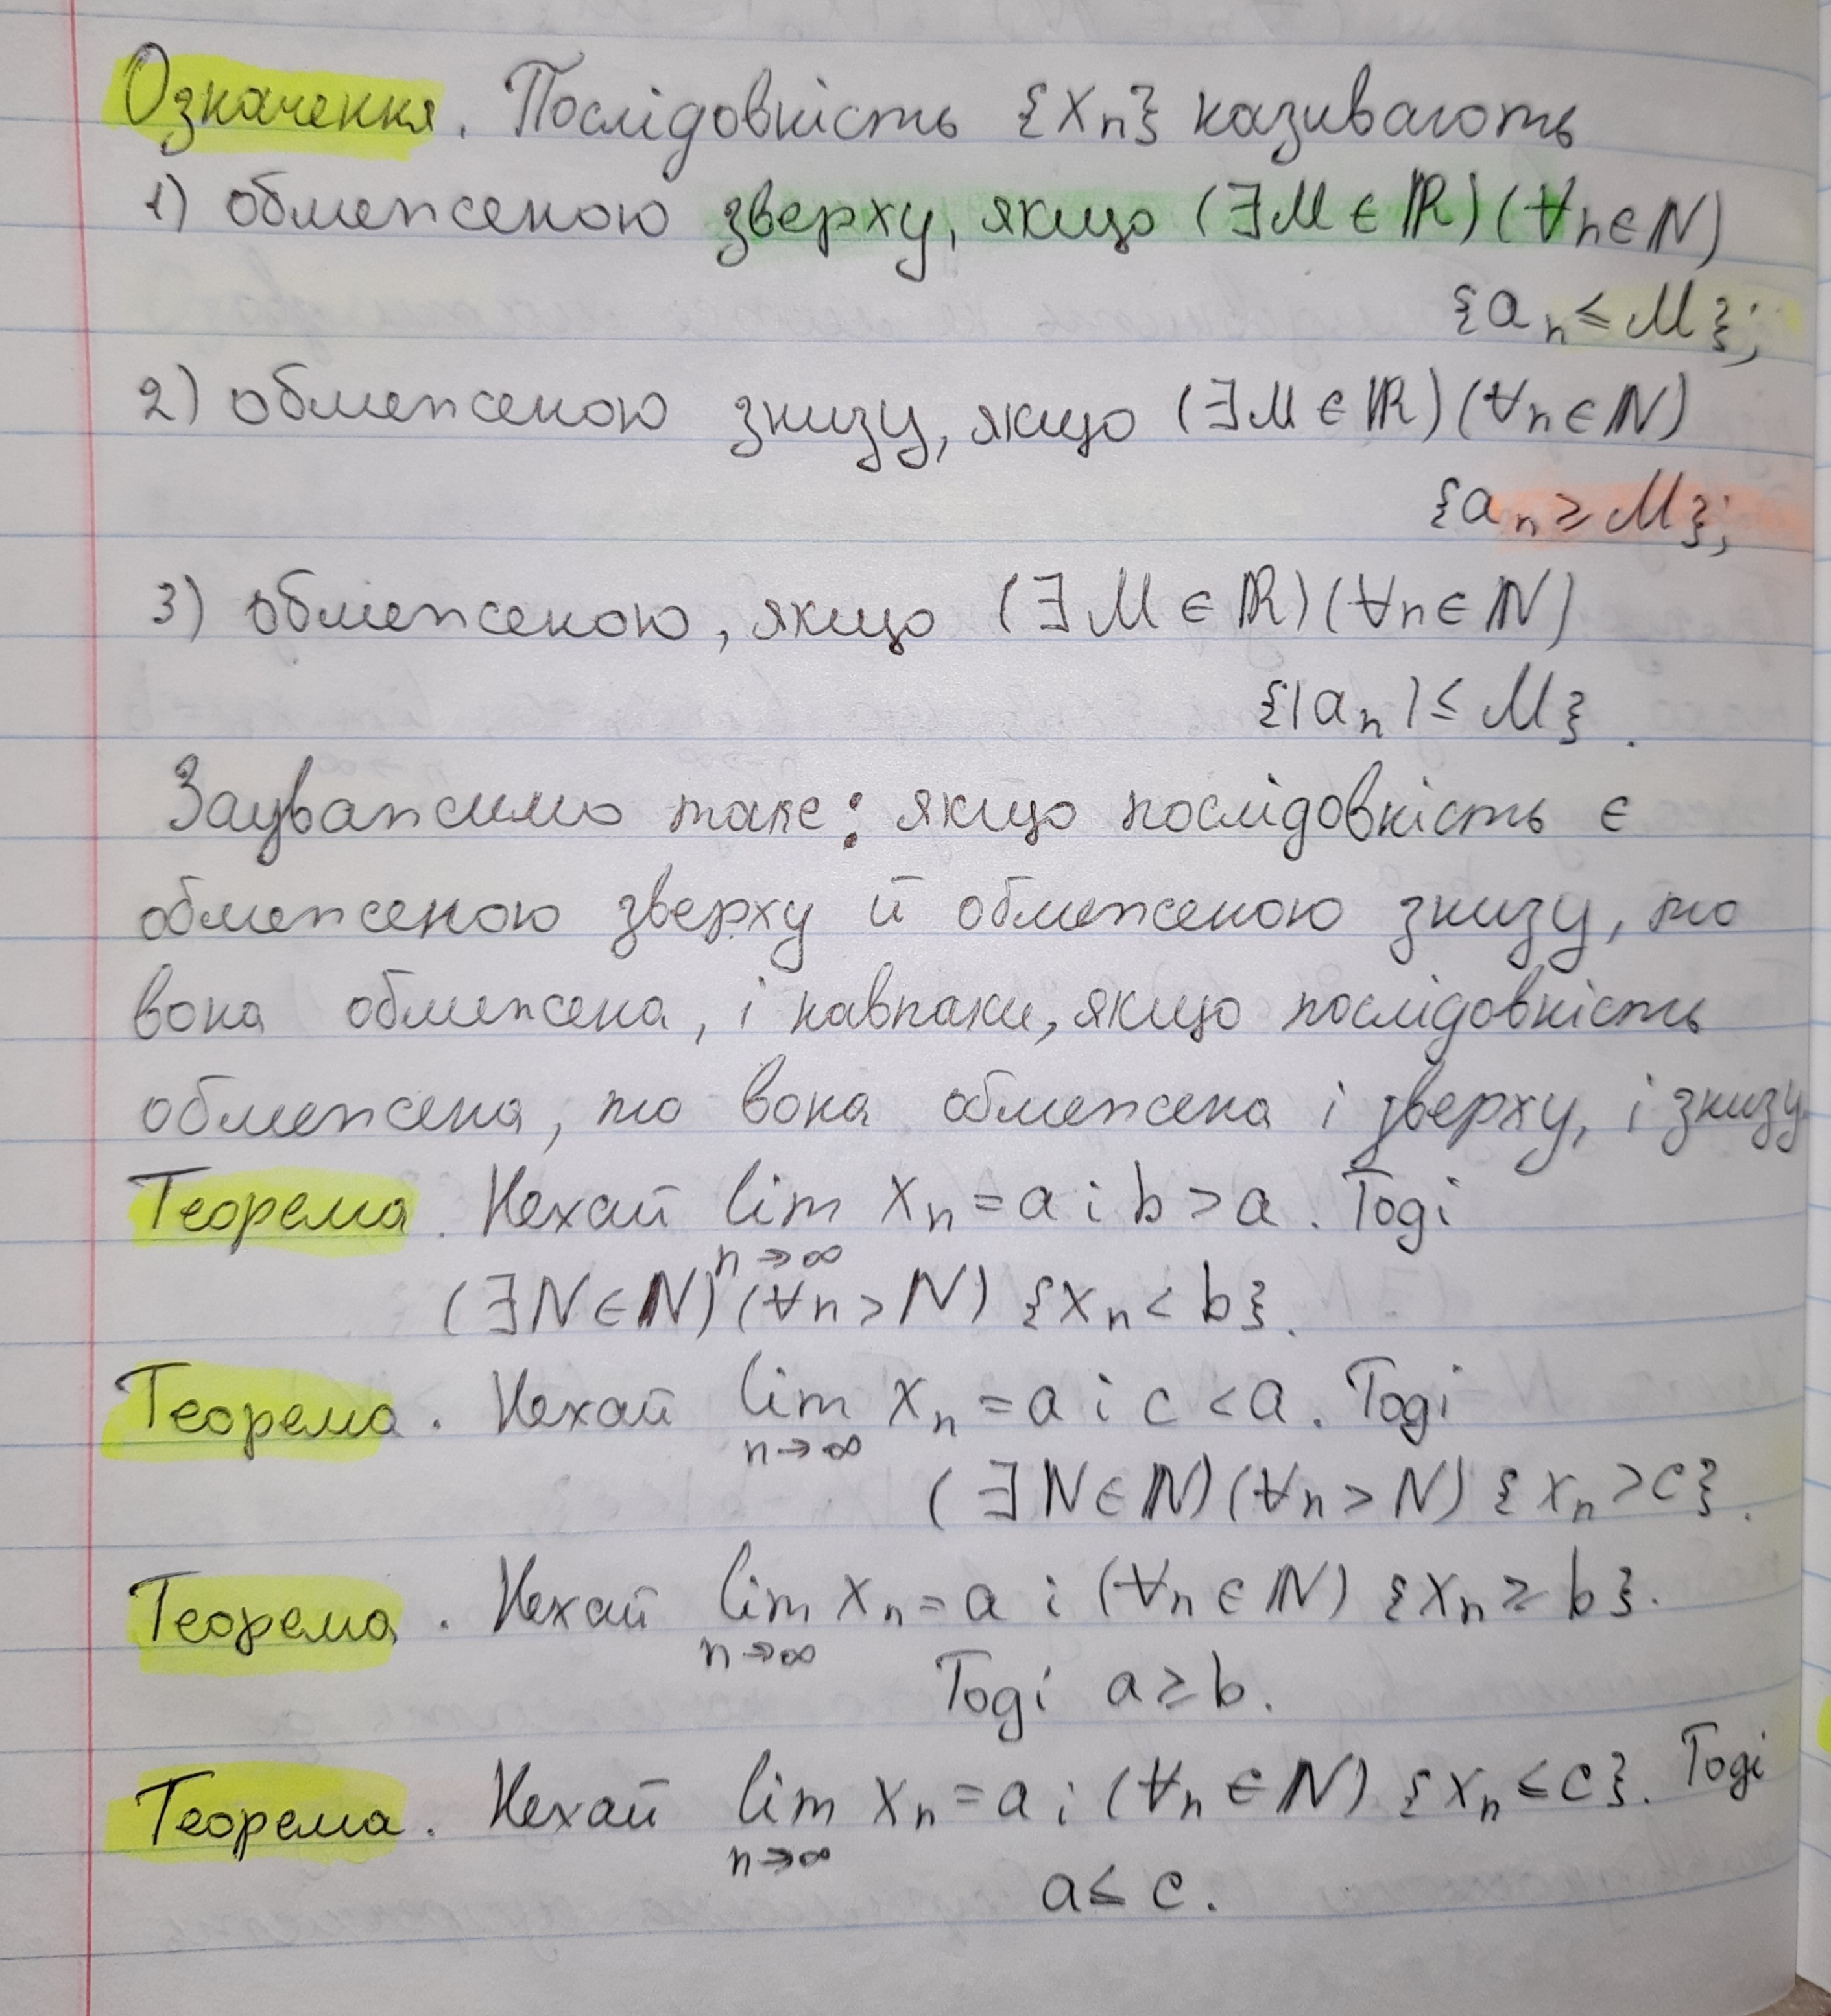 Означення. Послідовність {xₙ} називають
1) обмеженою зверху, якщо (∃M ∈ ℝ)(∀n ∈ ℕ)
{aₙ ≤ M};
2) обмеженою знизу, якщо (∃M ∈ ℝ)(∀n ∈ ℕ)
{aₙ ≥ M};
3) обмеженою, якщо (∃M ∈ ℝ)(∀n ∈ ℕ)
{|aₙ| ≤ M}.
Зауважимо таке: якщо послідовність є
обмеженою зверху й обмеженою знизу, то
вона обмежена, і навпаки, якщо послідовність
обмежена, то вона обмежена і зверху, і знизу.
Теорема. Нехай lim xₙ = a і b > a. Тоді
n→∞
(∃N ∈ ℕ)(∀n > N) {xₙ < b}.
Теорема. Нехай lim xₙ = a і c < a. Тоді
n→∞
(∃N ∈ ℕ)(∀n > N) {xₙ > c}.
Теорема. Нехай lim xₙ = a і (∀n ∈ ℕ) {xₙ ≥ b}.
n→∞
Тоді a ≥ b.
Теорема. Нехай lim xₙ = a і (∀n ∈ ℕ) {xₙ ≤ c}. Тоді
n→∞
a ≤ c.